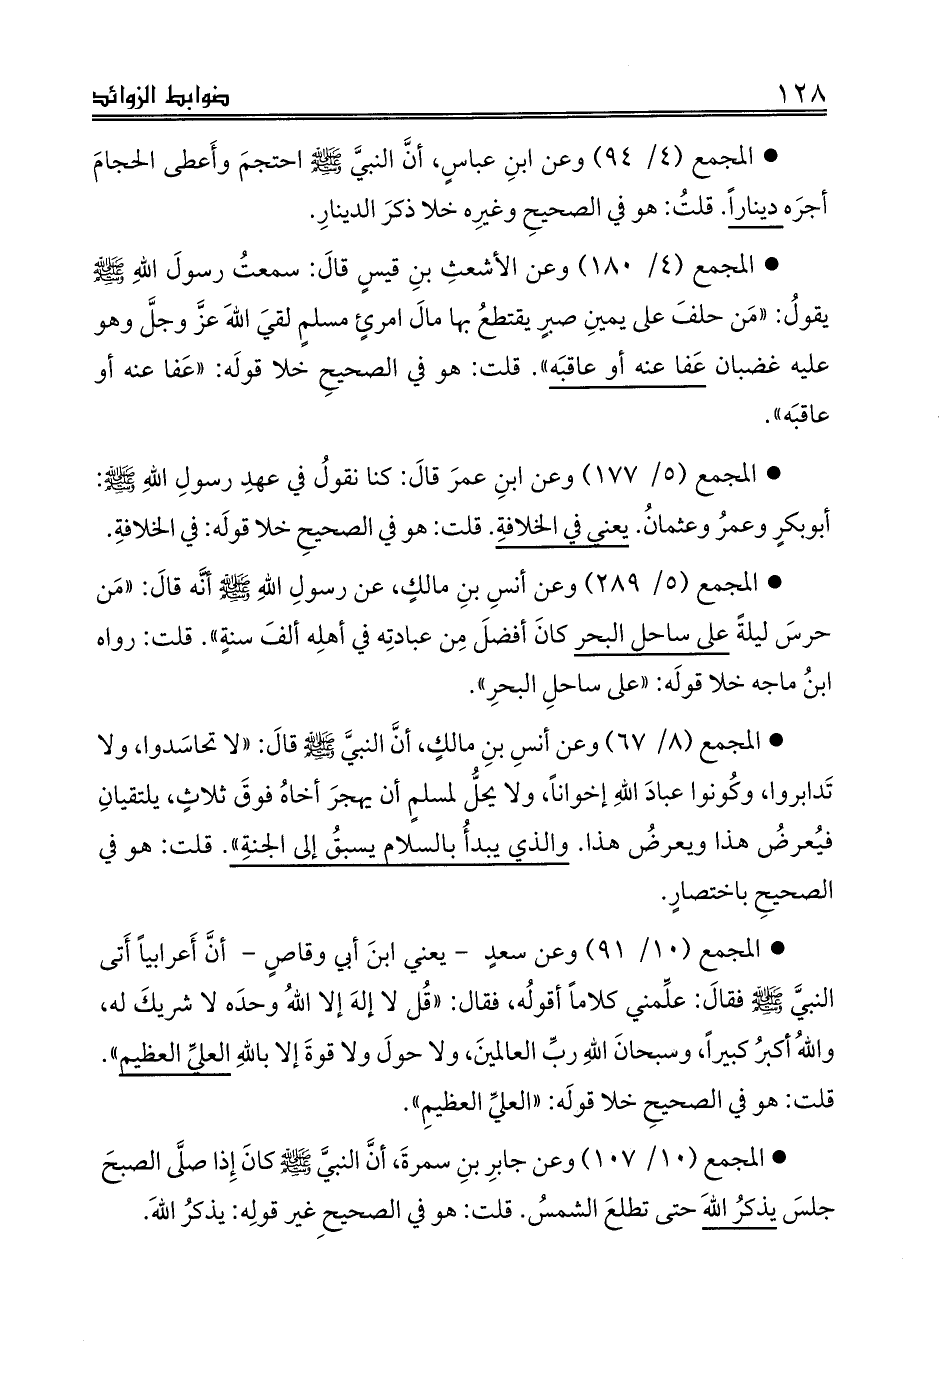 ١٢٨ ضوابط الزوائد
● المجمع (٤/ ٩٤) وعن ابنِ عباسٍ، أنَّ النبيَّ ﷺ احتجمَ وأَعطى الحجامَ
أجرَه ديناراً. قلتُ: هو في الصحيحِ وغيرِه خلا ذكرَ الدينارِ.
● المجمع (٤/ ١٨٠) وعن الأشعثِ بنِ قيسٍ قالَ: سمعتُ رسولَ اللهِ ﷺ
يقولُ: «مَن حلفَ على يمينِ صبرٍ يقتطعُ بها مالَ امرئٍ مسلمٍ لقيَ اللهَ عزَّ وجلَّ وهو
عليه غضبان عَفا عنه أو عاقبَه». قلت: هو في الصحيحِ خلا قولَه: «عَفا عنه أو
عاقبَه».
● المجمع (٥/ ١٧٧) وعن ابنِ عمرَ قالَ: كنا نقولُ في عهدِ رسولِ اللهِ ﷺ:
أبوبكرٍ وعمرُ وعثمانُ. يعني في الخلافةِ. قلت: هو في الصحيحِ خلا قولَه: في الخلافةِ.
● المجمع (٥/ ٢٨٩) وعن أنسِ بنِ مالكٍ، عن رسولِ اللهِ ﷺ أنَّه قالَ: «مَن
حرسَ ليلةً على ساحلِ البحر كانَ أفضلَ مِن عبادتِه في أهلِه ألفَ سنةٍ». قلت: رواه
ابنُ ماجه خلا قولَه: «على ساحلِ البحرِ».
● المجمع (٨/ ٦٧) وعن أنسِ بنِ مالكٍ، أنَّ النبيَّ ﷺ قالَ: «لا تحاسَدوا، ولا
تَدابروا، وكُونوا عبادَ اللهِ إخواناً، ولا يحلُّ لمسلمٍ أن يهجرَ أخاهُ فوقَ ثلاثٍ، يلتقيانِ
فيُعرضُ هذا ويعرضُ هذا. والذي يبدأُ بالسلامِ يسبقُ إلى الجنةِ». قلت: هو في
الصحيحِ باختصارٍ.
● المجمع (١٠/ ٩١) وعن سعدٍ - يعني ابنَ أبي وقاصٍ - أنَّ أَعرابياً أَتى
النبيَّ ﷺ فقالَ: علِّمني كلاماً أقولُه، فقال: «قُل لا إلهَ إلا اللهُ وحدَه لا شريكَ له،
واللهُ أكبرُ كبيراً، وسبحانَ اللهِ ربِّ العالمينَ، ولا حولَ ولا قوةَ إلا باللهِ العليِّ العظيمِ».
قلت: هو في الصحيحِ خلا قولَه: «العليِّ العظيمِ».
● المجمع (١٠/ ١٠٧) وعن جابرِ بنِ سمرةَ، أنَّ النبيَّ ﷺ كانَ إِذا صلَّى الصبحَ
جلسَ يذكرُ اللهَ حتى تطلعَ الشمسُ. قلت: هو في الصحيحِ غير قولِه: يذكرُ اللهَ.